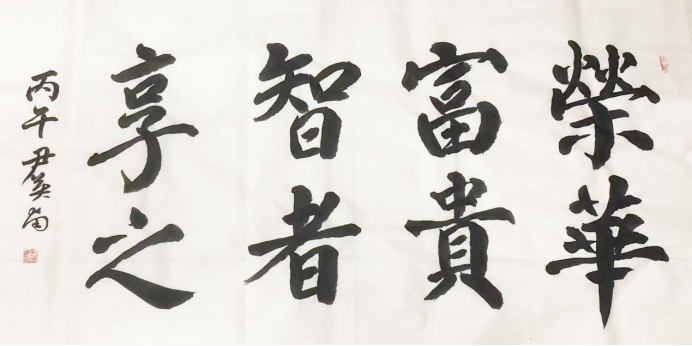 榮華
富貴
智者
享之
丙午 尹